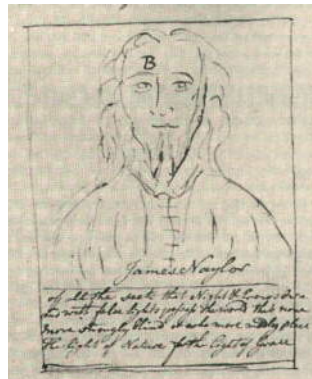 B
James Naylor
of all the sects that Night &
and with false lights the word that none
more strongly blind & who more place
the light of Nature for the light of Grace